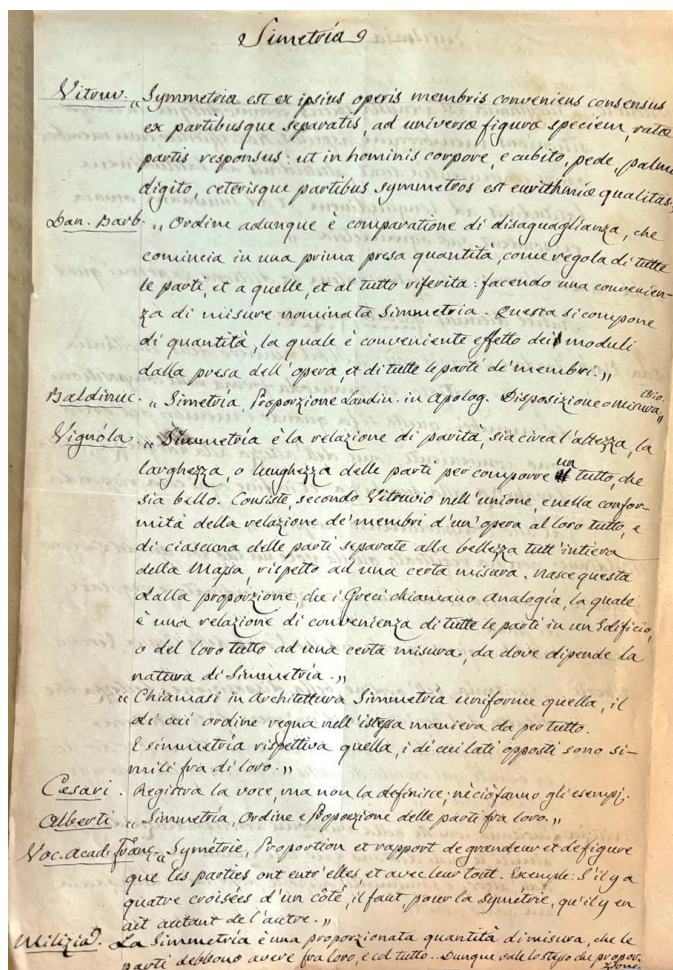 Simetria
Vitruv. „Symmetria est ex ipsius operis membris conveniens consensus
ex partibusque separatis, ad universæ figuræ speciem, ratæ
partis responsus: ut in hominis corpore, e cubito, pede, palmo
digito, ceterisque partibus symmetros est eurithmiæ qualitas.
Dan. Barb. „Ordine adunque è comparatione di disaguaglianza, che
comincia in una prima presa quantità, come regola di tutte
le parti, et a quelle, et al tutto riferita: facendo una convenien-
za di misure nominata Simmetria. Questa si compone
di quantità, la quale è conveniente effetto dei moduli
dalla presa dell'opera, et di tutte le parti de' membri.„
Baldinuc. „Simetria, Proporzione Landin. in Apolog. Disposizione o misura„
Vignóla. „Simmetria è la relazione di parità, sia circa l'altezza, la
larghezza, o lunghezza delle parti per comporre un tutto, che
sia bello. Consiste, secondo Vitruvio nell'unione, e nella confor-
mità della relazione de' membri d'un'opera al loro tutto, e
di ciascuna delle parti separate alla bellezza tutt'intiera
della Massa, rispetto ad una certa misura. Nasce questa
dalla proporzione, che i Greci chiamano Analogía, la quale
è una relazione di convenienza di tutte le parti in un Edificio,
o del loro tutto ad una certa misura, da dove dipende la
natura di Simmetria.„
„Chiamasi in Architettura Simmetria uniforme quella, il
di cui ordine regna nell'istessa maniera da per tutto.
E simmetria rispettiva quella, i di cui lati opposti sono si-
mili fra di loro.„
Cesari. Registra la voce, ma non la definisce; nè ciò fanno gli esempj.
Alberti. „Simmetria, Ordine e Proporzione delle parti fra loro.„
Voc. Acad. Franç. „Symétrie, Proportion et rapport de grandeur et de figure
que les parties ont entr'elles, et avec leur tout. Exemple: S'il y a
quatre croisées d'un côté, il faut, pour la symétrie, qu'il y en
ait autant de l'autre.„
Milizia. La Simmetria è una proporzionata quantità di misura, che le
parti debbono avere fra loro, e col tutto. Dunque vale lo stesso che propor-
zione.